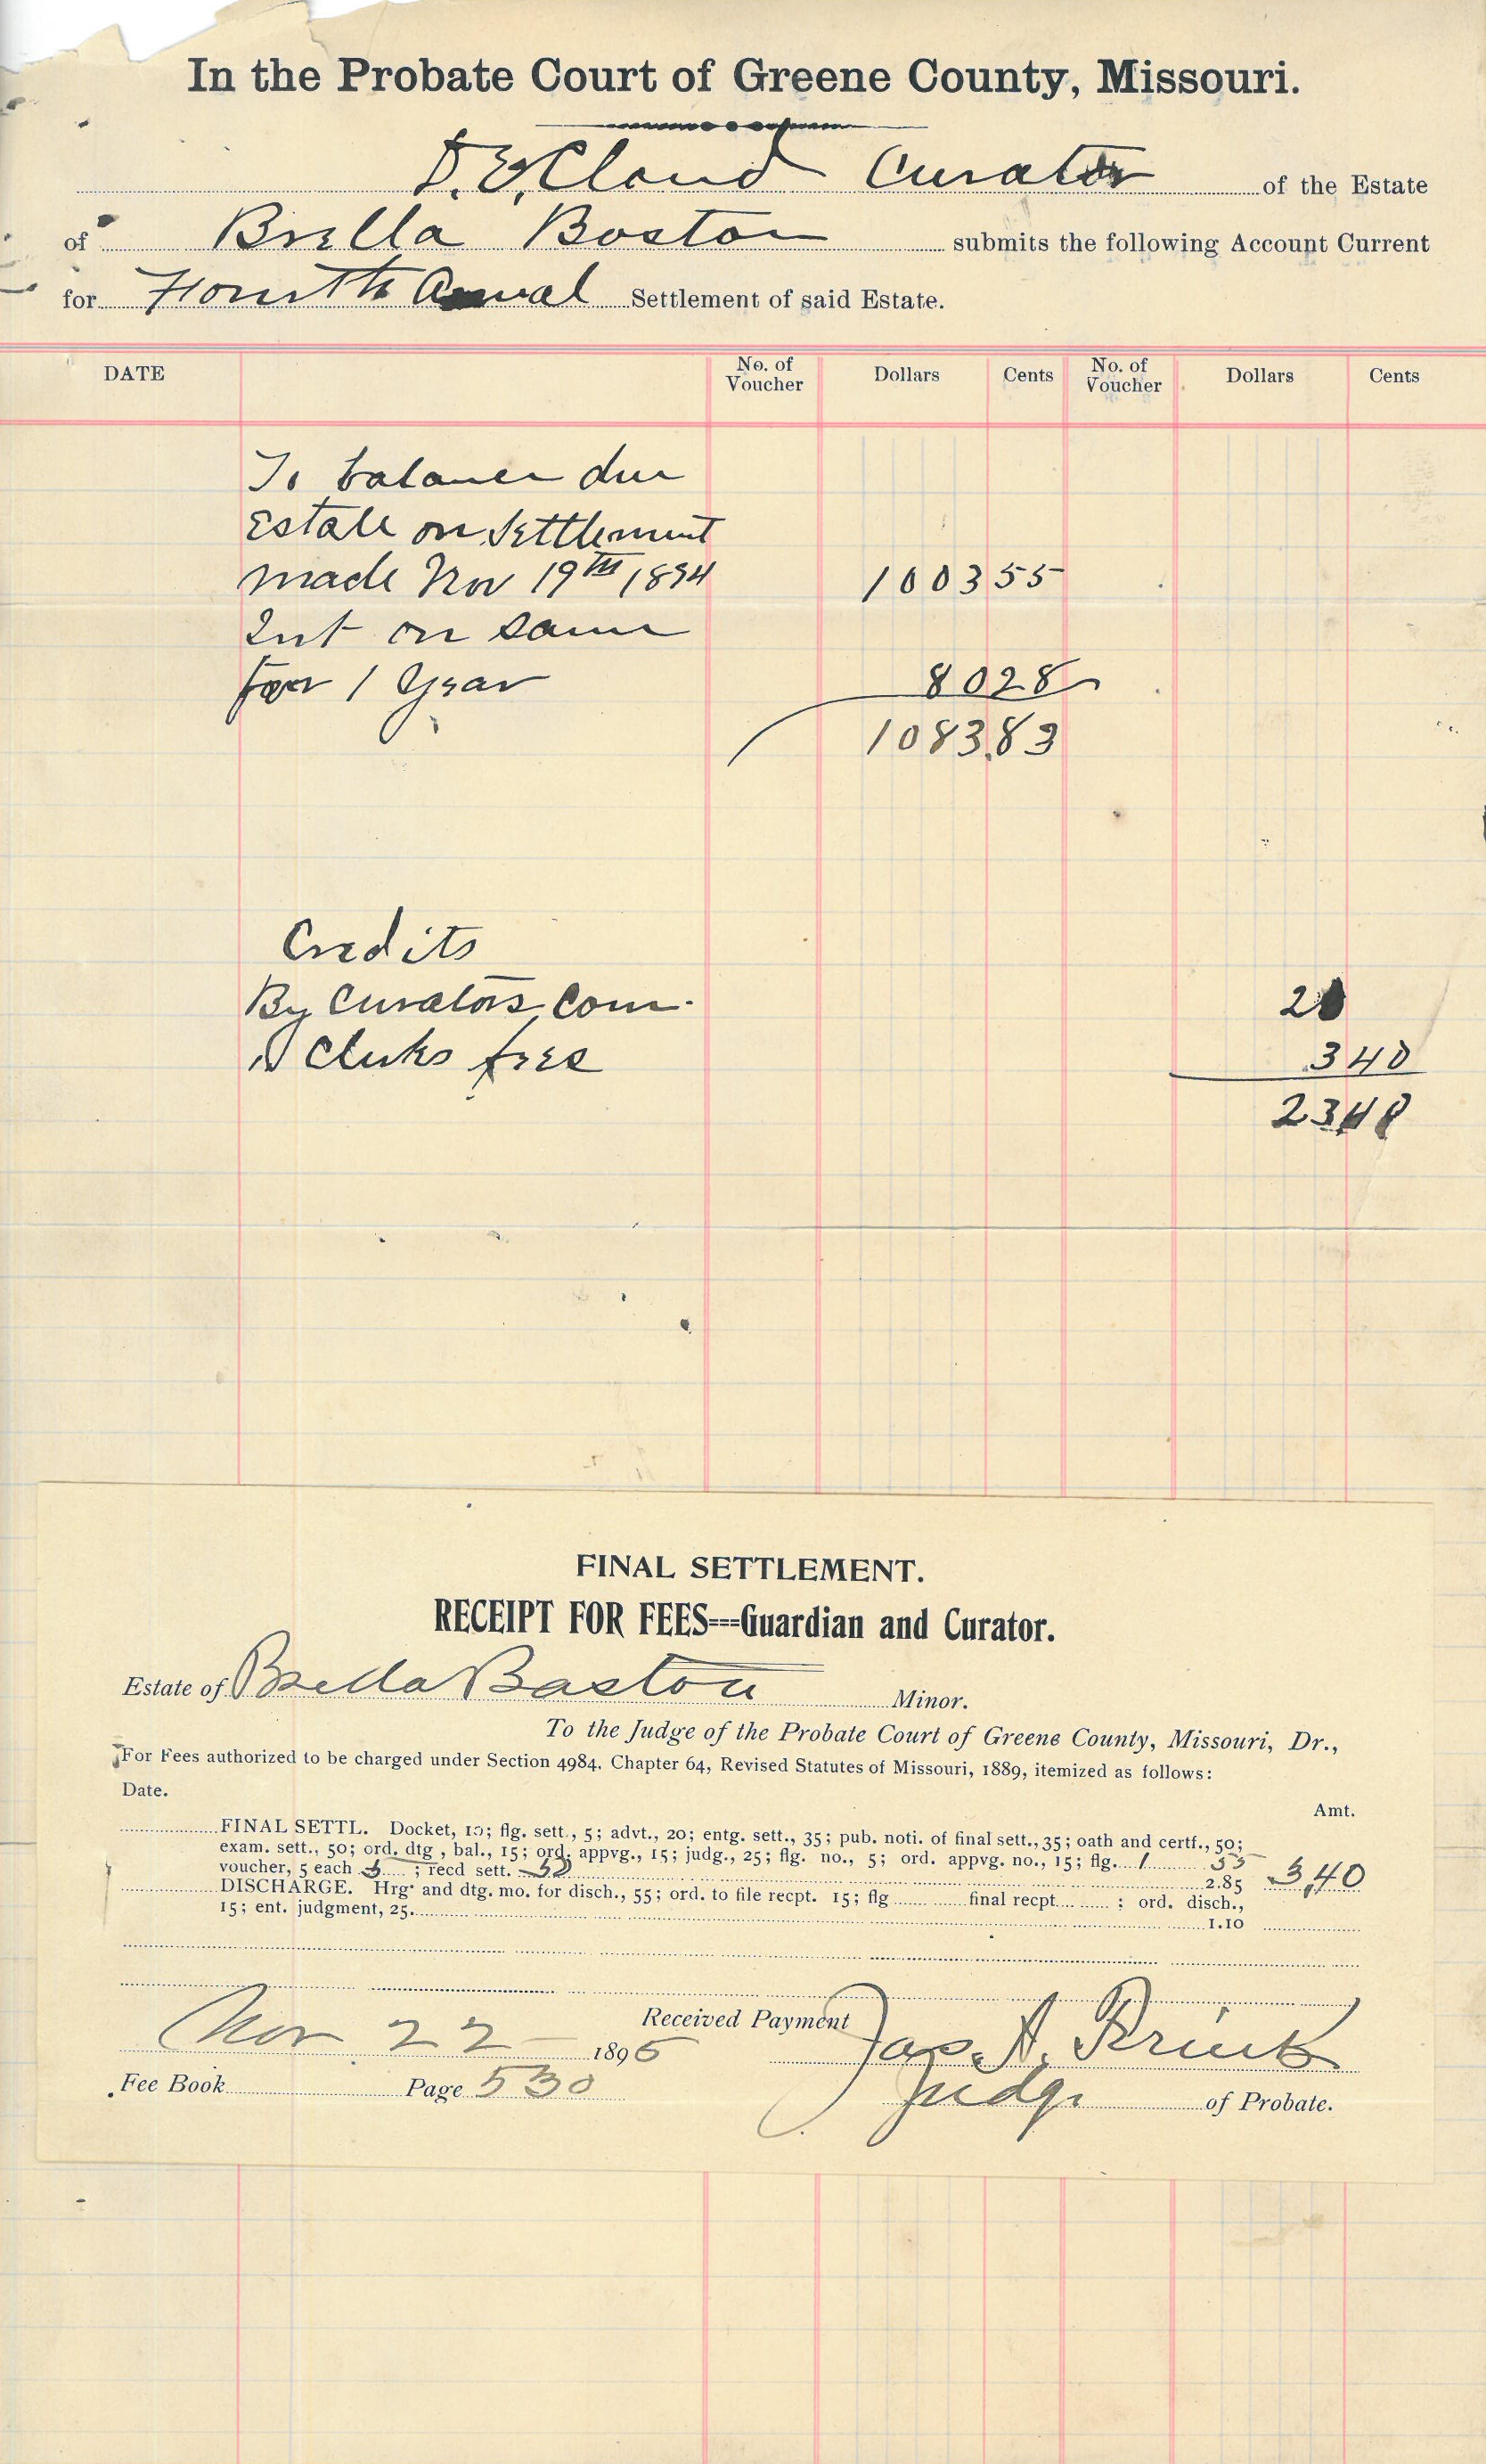 In the Probate Court of Greene County, Missouri.
D. E. Cloud Curator of the Estate
of Brella Boston submits the following Account Current
for Fourth Anual Settlement of said Estate.
DATE No. of Voucher Dollars Cents No. of Voucher Dollars Cents
To balance due
Estate on Settlement
made Nov 19th 1894 1003 55
Int on same
for 1 year 80 28
1083.83
Credits
By Curators Com. 20
" Clerks fees 3 40
23 40
FINAL SETTLEMENT.
RECEIPT FOR FEES---Guardian and Curator.
Estate of Brella Boston Minor.
To the Judge of the Probate Court of Greene County, Missouri, Dr.,
For Fees authorized to be charged under Section 4984, Chapter 64, Revised Statutes of Missouri, 1889, itemized as follows:
Date.
Amt.
FINAL SETTL. Docket, 10; flg. sett., 5; advt., 20; entg. sett., 35; pub. noti. of final sett., 35; oath and certf., 50;
exam. sett., 50; ord. dtg, bal., 15; ord. appvg., 15; judg., 25; flg. no., 5; ord. appvg. no., 15; flg. 1 55
voucher, 5 each 5; recd sett. 50 2.85 3,40
DISCHARGE. Hrg. and dtg. mo. for disch., 55; ord. to file recpt. 15; flg final recpt. : ord. disch.,
15; ent. judgment, 25. 1.10
Received Payment Jas. A. Prink
Nov 22 1895
Fee Book Page 530 Judge of Probate.